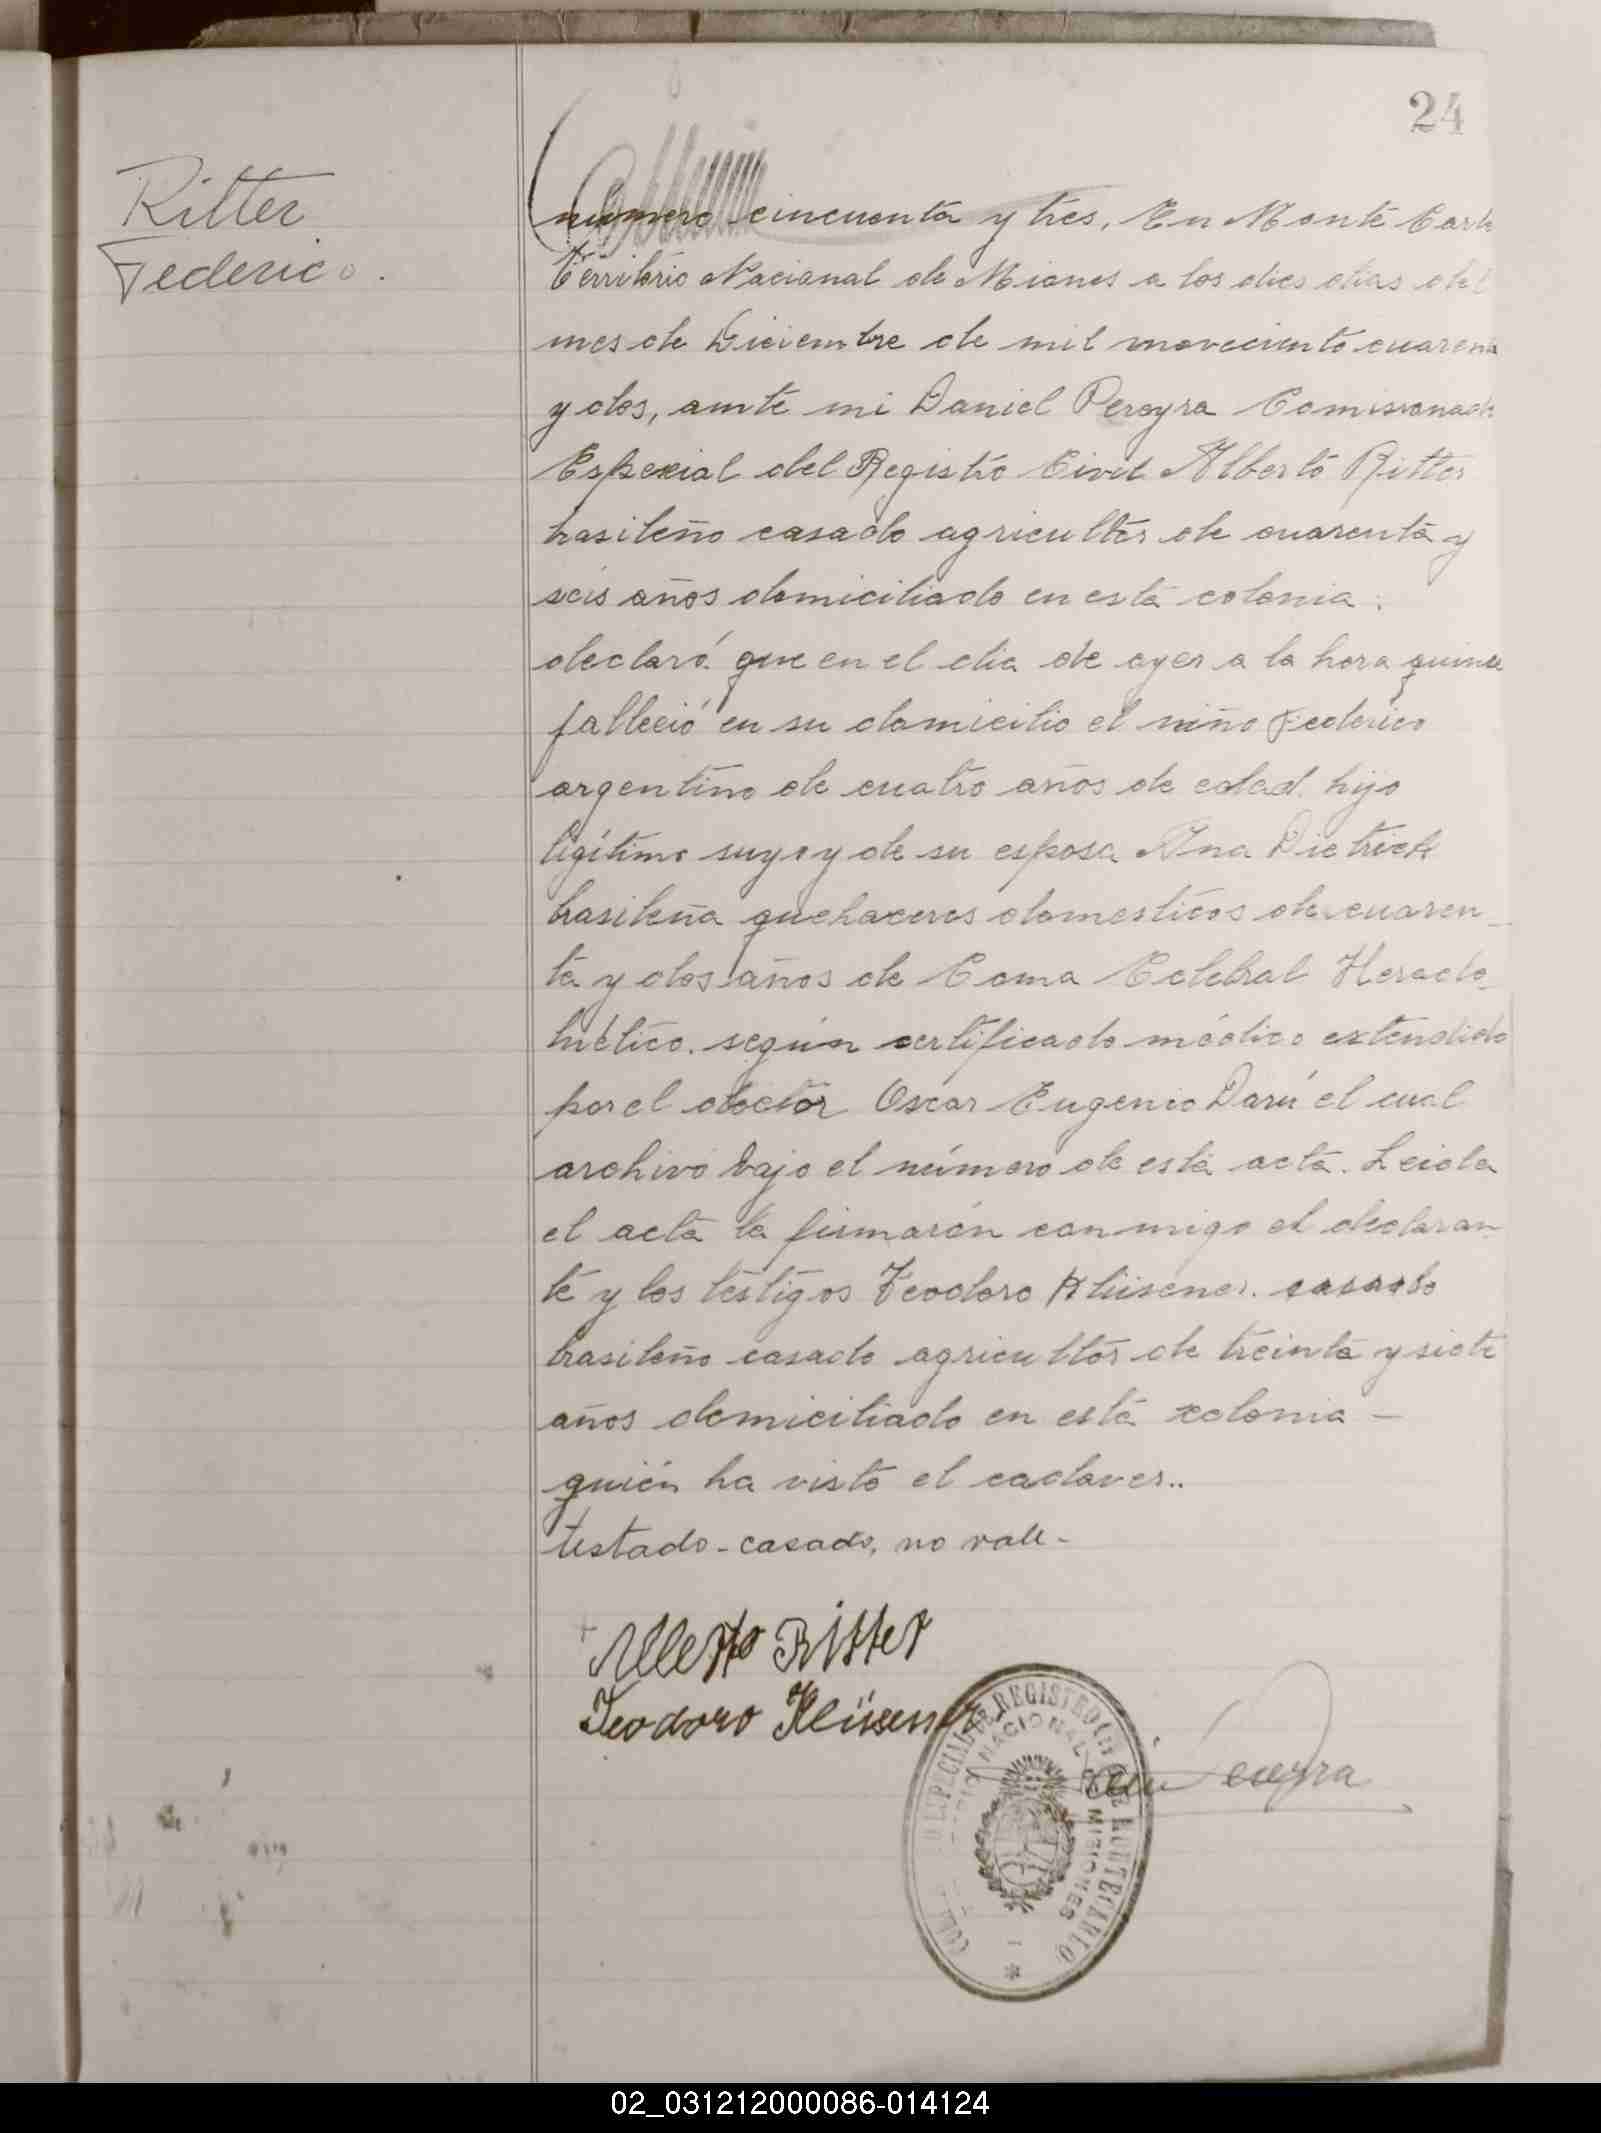 24
Ritter
Federico.
numero cincuenta y tres, En Monte Carlo
Territorio Nacional de Miones a los dies dias del
mes de Diciembre de mil noveciento cuarenta
y dos, ante mi Daniel Pereyra Comisionado
Especial del Registro Civil Alberto Ritter
brasileño casado agricultor de cuarenta y
seis años domiciliado en esta colonia.
declaró que en el dia de ayer a la hora quince
falleció en su domicilio el niño Federico
argentino de cuatro años de edad hijo
ligítimo suyo y de su esposa Ana Dietrich
brasileña quehaceres domesticos de cuaren-
ta y dos años de Coma Celebral Heredo-
luético. según certificado médico extendido
por el doctor Oscar Eugenio Darú el cual
archivo bajo el número de esta acta. Leida
el acta la firmarón conmigo el declaran-
te y los testigos Teodoro Klüsener. casado
brasileño casado agricultor de treinta y siete
años domiciliado en está colonia -
quién ha visto el cadaver..
testado - casado, no vale -
Alberto Ritter
Teodoro Klüsener
Pereyra
ESPECIAL DE REGISTRO CIVIL DE MONTECARLO
NACIONAL DE MISIONES
02_031212000086-014124